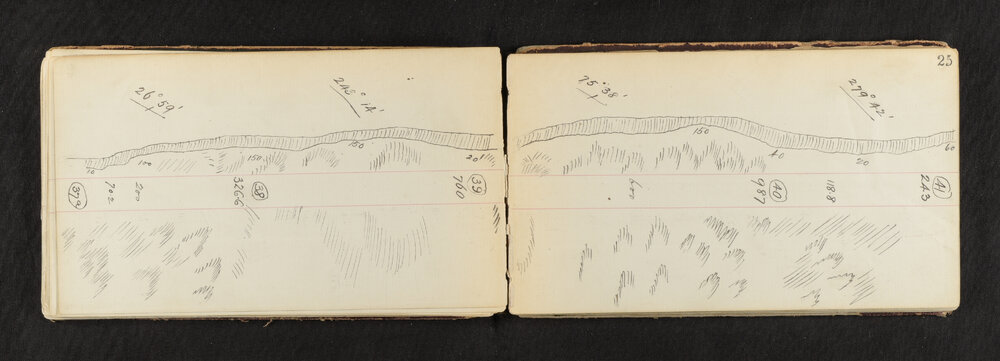 26°59'
248°14'
70
100
150
150
201
37a
702
200
3266
38
39
760
25
75°38'
279°42'
150
40
20
60
600
987
40
118.8
243
41